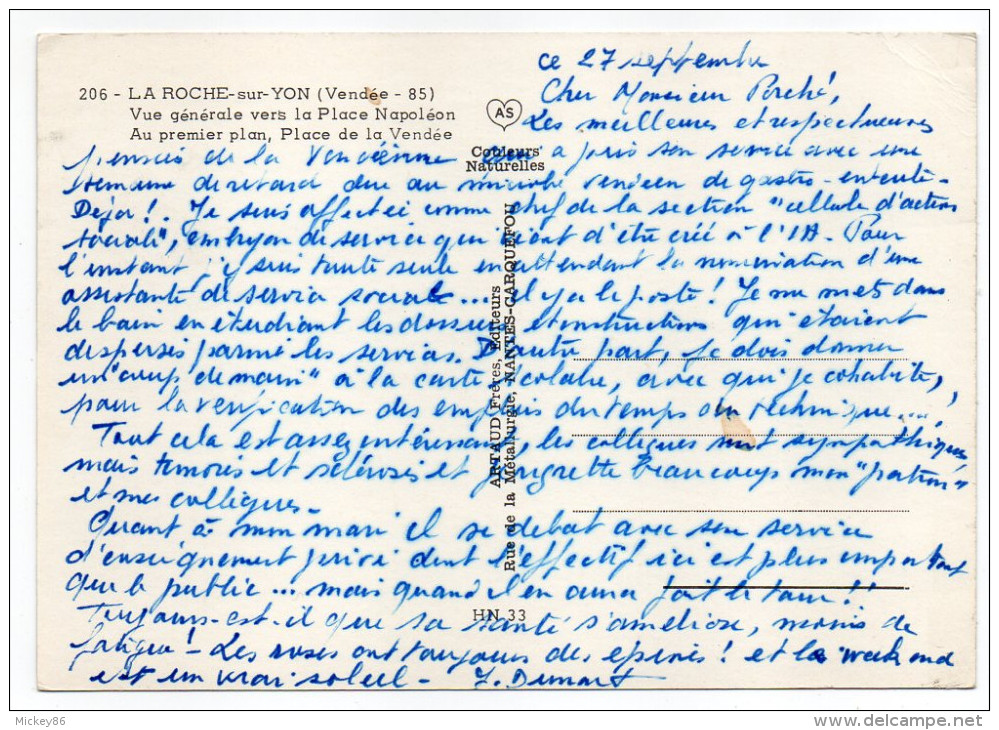 206 - LA ROCHE-sur-YON (Vendée - 85)
Vue générale vers la Place Napoléon
Au premier plan, Place de la Vendée
AS
Couleurs
Naturelles
ARTAUD Frères, Editeurs
Rue de la Métallurgie, NANTES-CARQUEFOU
HN 33
ce 27 septembre
Cher Monsieur Porché,
Les meilleures et respectueuses
pensées de la Vendéenne qui a pris son service avec une
semaine de retard due au microbe vendéen de gastro-entérite-
Déjà!. Je suis affectée comme chef de la section "cellule d'action
sociale", embryon de service qui vient d'être créé à l'IA. Pour
l'instant j'y suis toute seule en attendant la nomination d'une
assistante de service sociale... il y a le poste! Je me mets dans
le bain en étudiant les dossiers et instructions qui étaient
dispersés parmi les services. D'autre part, je dois donner
un "coup de main" à la carte scolaire, avec qui je cohabite,
pour la vérification des emplois du temps du technique...
Tout cela est assez intéressant, les collègues sont sympathiques
mais timorés et sclérosés et je regrette beaucoup mon "patron"
et mes collègues-
Quant à mon mari il se débat avec son service
d'enseignement privé dont l'effectif ici est plus important
que le public... mais quand il en aura fait le tour!!
Toujours est-il que sa santé s'améliore, moins de
fatigue! Les roses ont toujours des épines! et le week end
est un vrai soleil- J. Dumont
Mickey86
www.delcampe.net